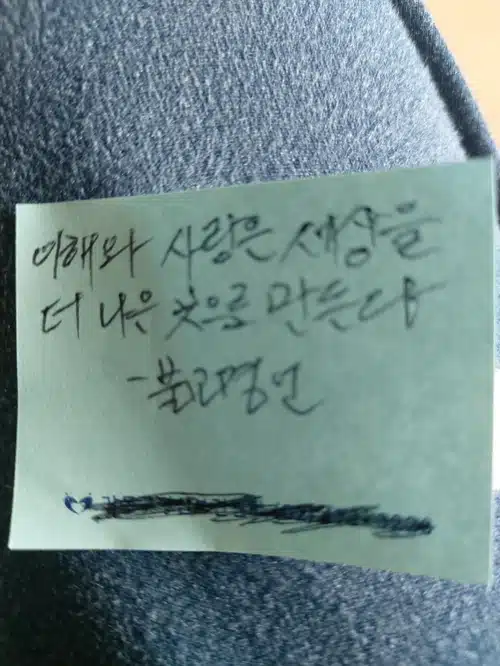 이해와 사랑은 세상을
더 나은 것으로 만든다
-불교명언